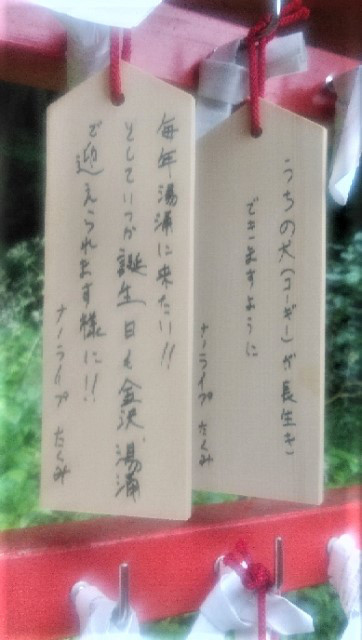 うちの犬(コーギー)が長生き
できますように
ナノライフ たくみ
毎年湯涌に来たい!!
そしていつか誕生日も金沢、湯涌
で迎えられます様に!!
ナノライフ たくみ